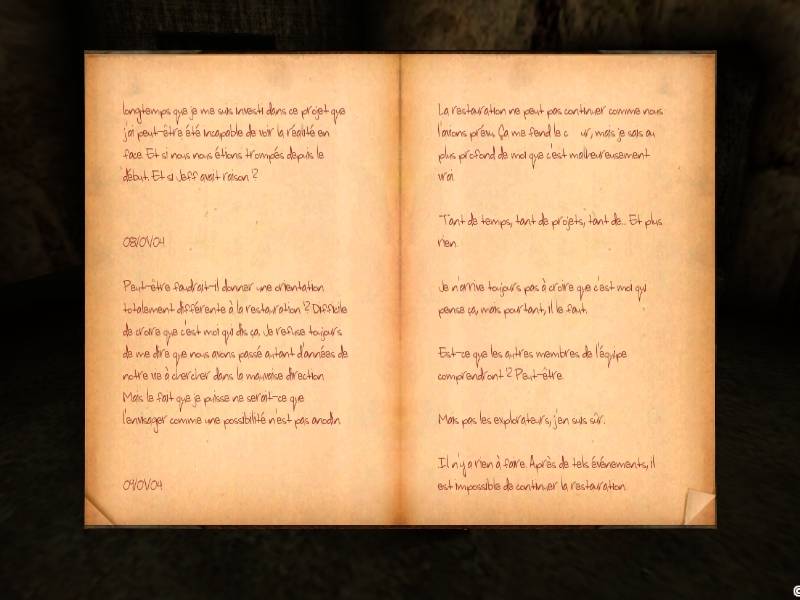 longtemps que je me suis investi dans ce projet que
j'ai peut-être été incapable de voir la réalité en
face. Et si nous nous étions trompés depuis le
début. Et si Jeff avait raison ?
08/01/04
Peut-être faudrait-il donner une orientation
totalement différente à la restauration ? Difficile
de croire que c'est moi qui dis ça. Je refuse toujours
de me dire que nous avons passé autant d'années de
notre vie à chercher dans la mauvaise direction.
Mais le fait que je puisse ne serait-ce que
l'envisager comme une possibilité n'est pas anodin.
09/01/04
La restauration ne peut pas continuer comme nous
l'avions prévu. Ça me fend le c ur, mais je sais au
plus profond de moi que c'est malheureusement
vrai.
Tant de temps, tant de projets, tant de... Et plus
rien.
Je n'arrive toujours pas à croire que c'est moi qui
pense ça, mais pourtant, il le faut.
Est-ce que les autres membres de l'équipe
comprendront ? Peut-être.
Mais pas les explorateurs, j'en suis sûr.
Il n'y a rien à faire. Après de tels événements, il
est impossible de continuer la restauration.
©